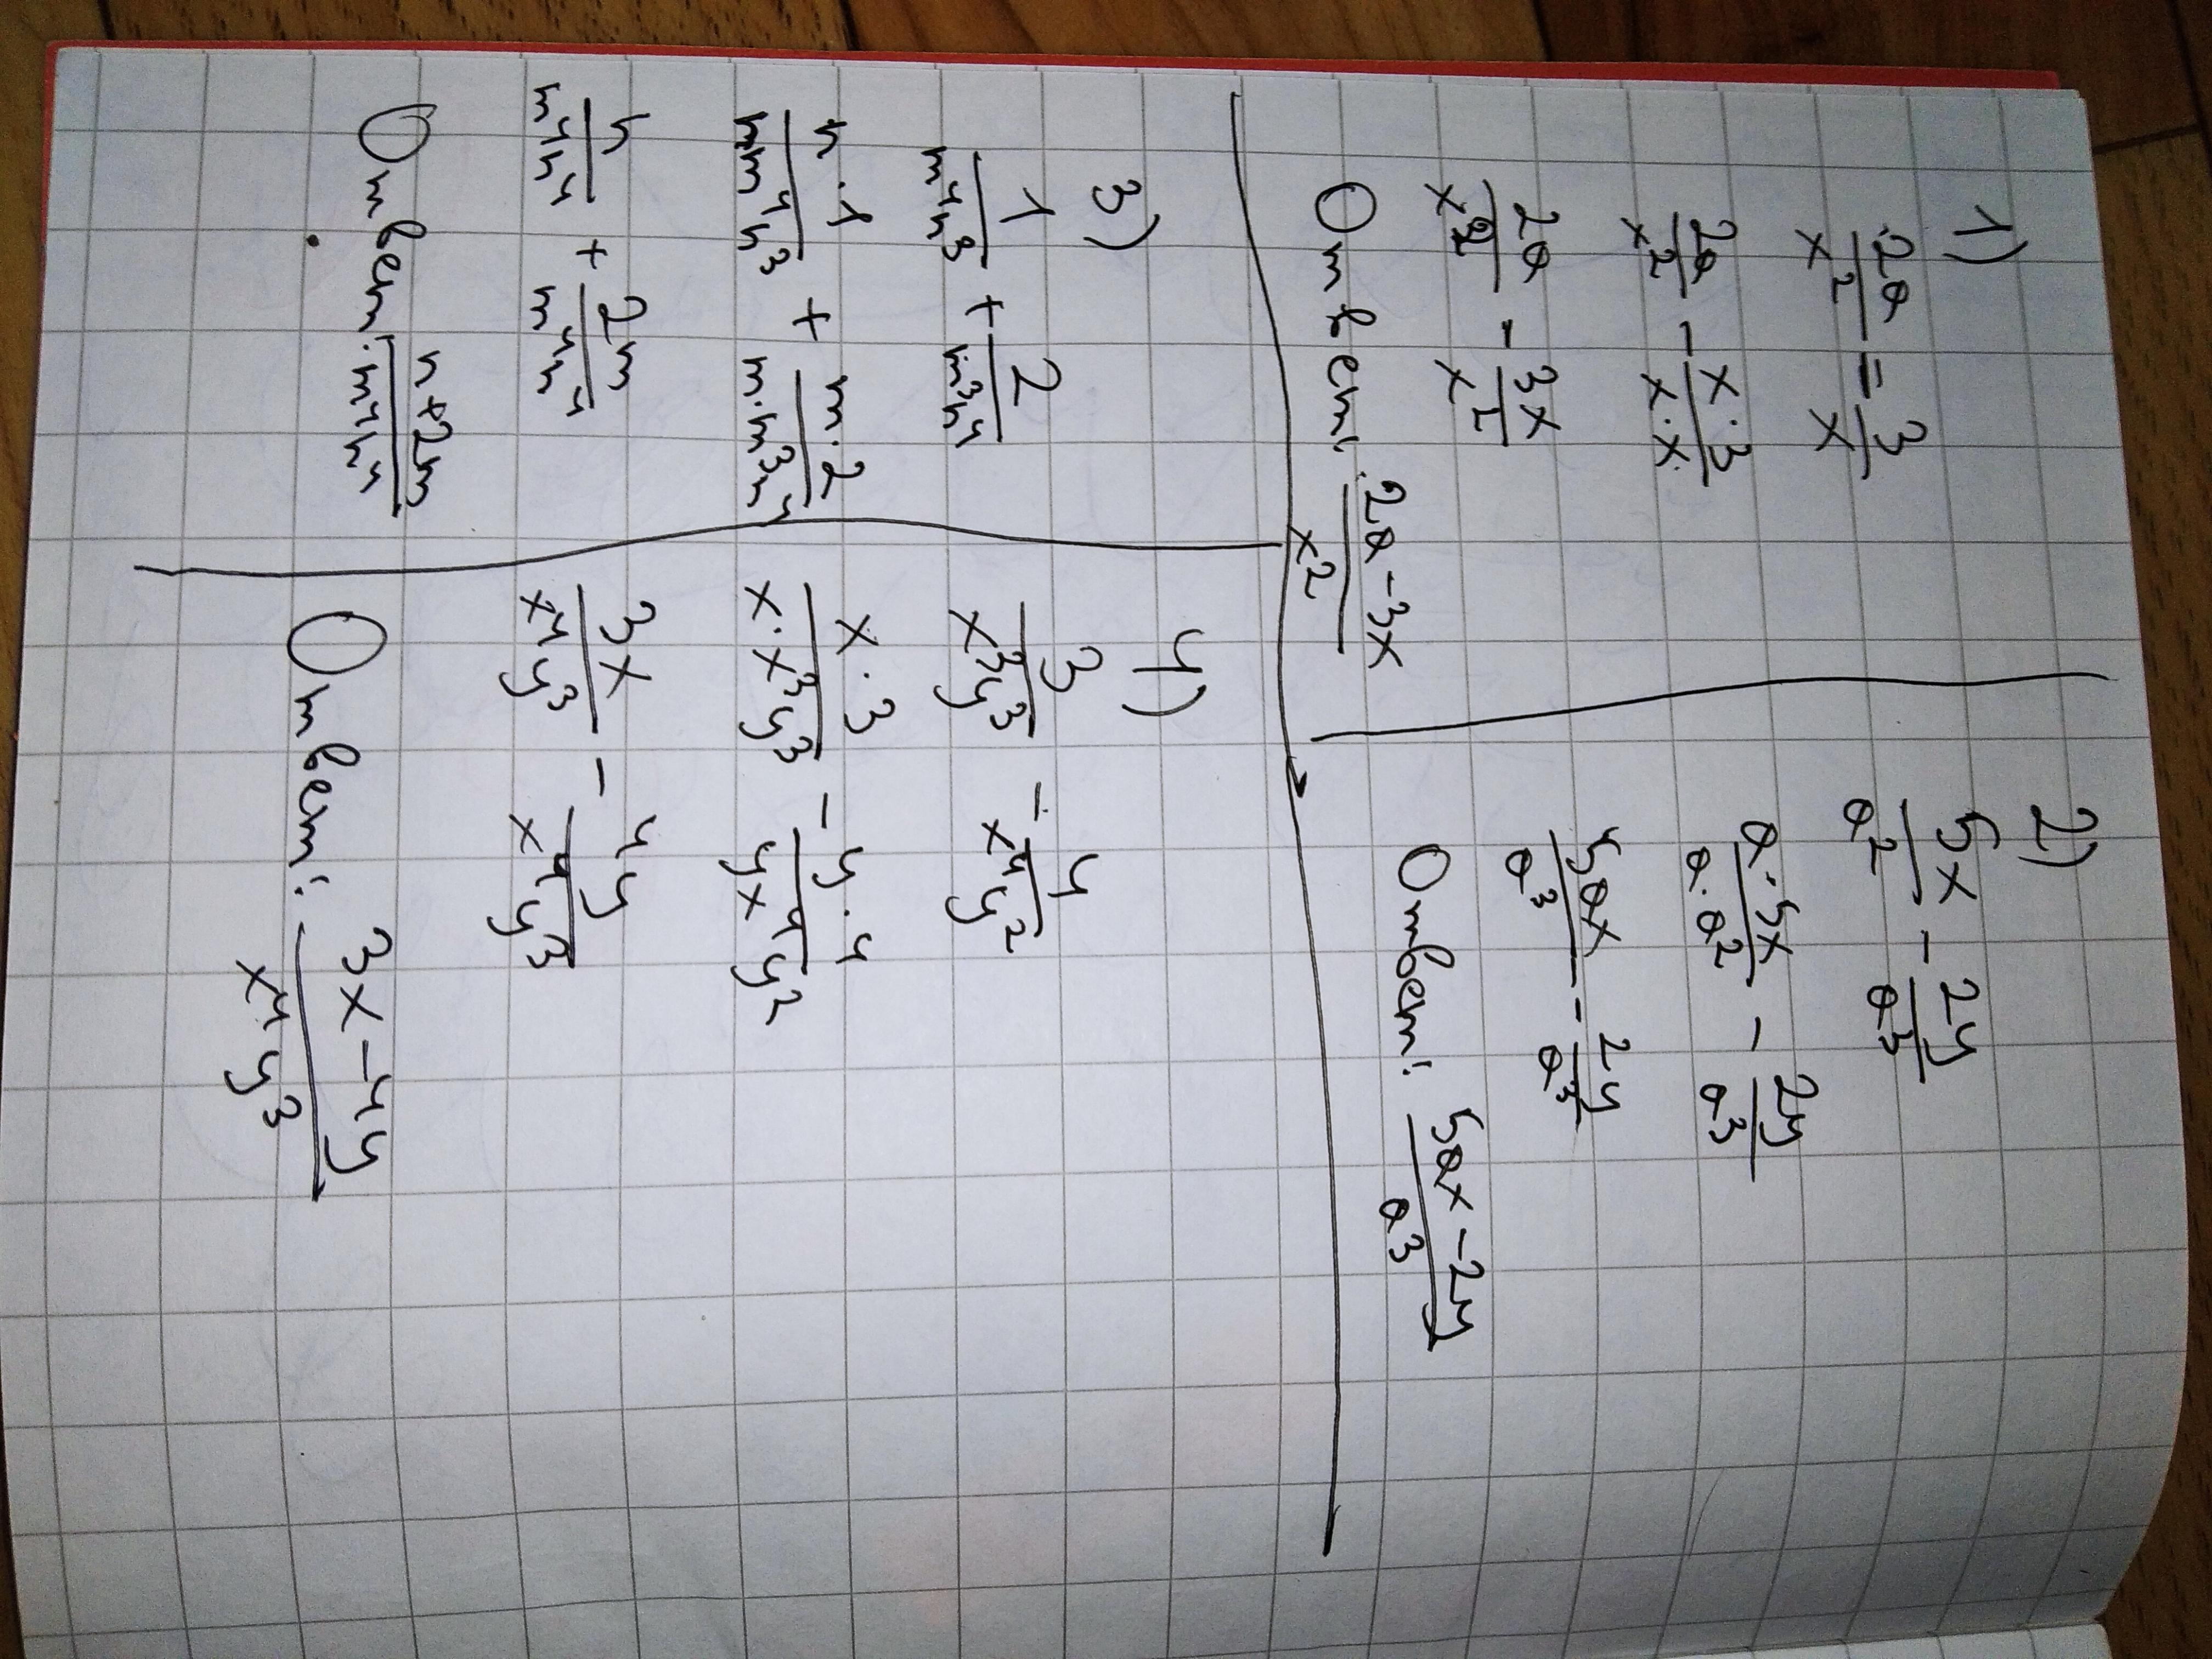 1)
2a/x² = 3/x
2a/x² - x·3/x·x
2a/x² - 3x/x²
Ответ: 2a-3x/x²
2)
5x/a² - 2y/a³
a·5x/a·a² - 2y/a³
5ax/a³ - 2y/a³
Ответ: 5ax-2y/a³
3)
1/m⁴n³ + 2/m³n⁴
n·1/nm⁴n³ + m·2/m·m³n⁴
n/m⁴n⁴ + 2m/m⁴n⁴
Ответ: n+2m/m⁴n⁴
4)
3/x³y³ - 4/x⁴y²
x·3/x·x³y³ - y·4/yx⁴y²
3x/x⁴y³ - 4y/x⁴y³
Ответ: 3x-4y/x⁴y³